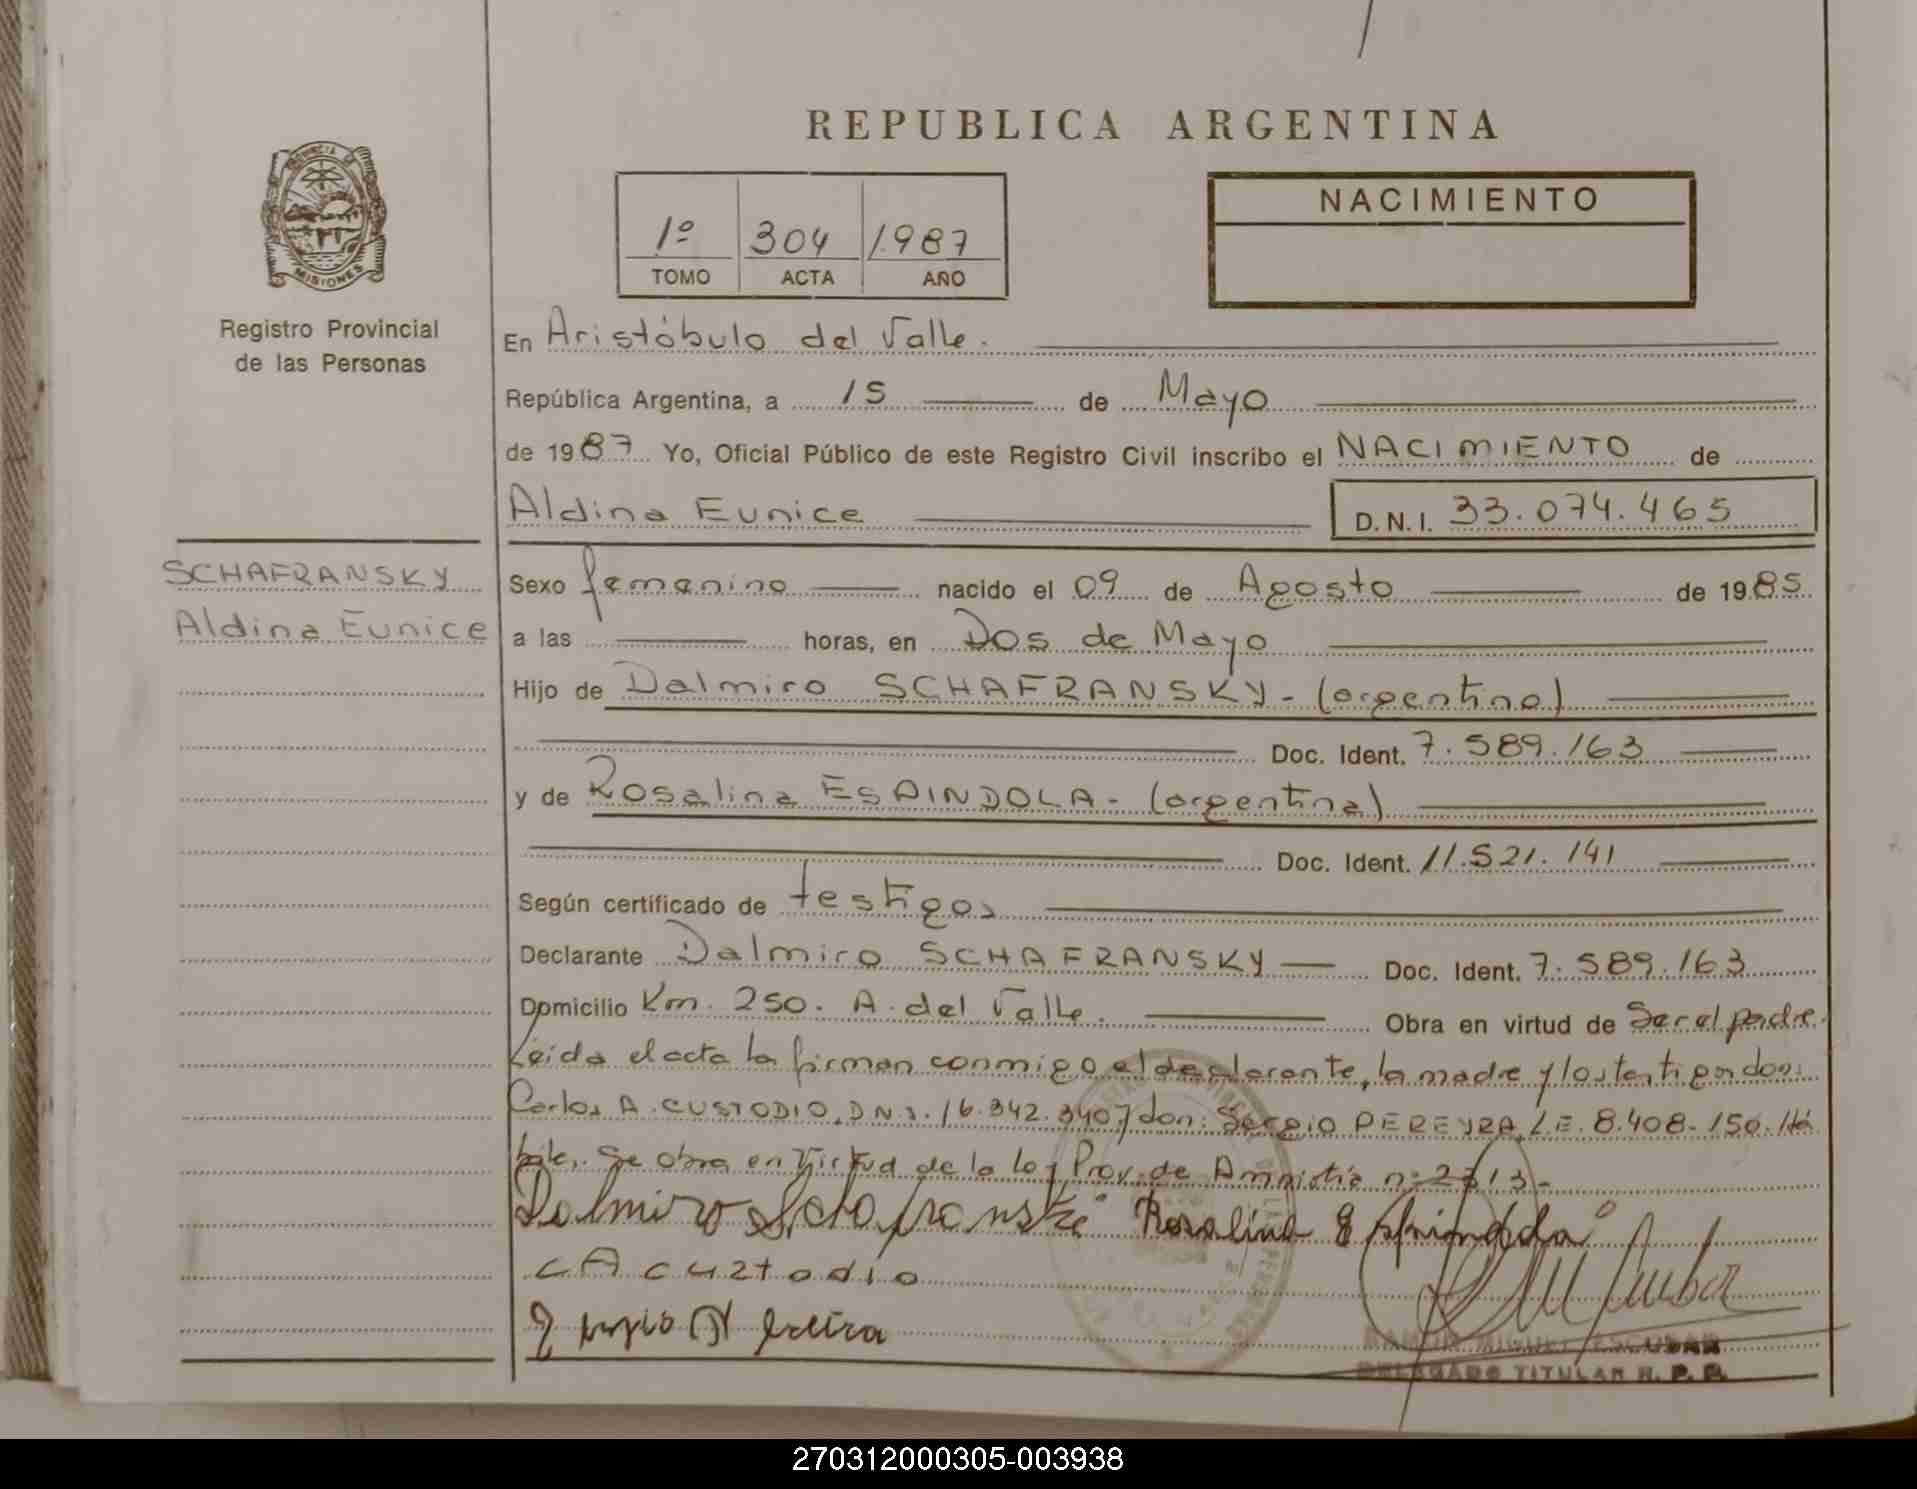 REPUBLICA ARGENTINA
PROVINCIA DE
MISIONES
Registro Provincial
de las Personas
1º 304 1987
TOMO ACTA AÑO
NACIMIENTO
En Aristóbulo del Valle.
República Argentina, a 15 de Mayo
de 1987 Yo, Oficial Público de este Registro Civil inscribo el NACIMIENTO de
Aldina Eunice D.N.I. 33.074.465
SCHAFRANSKY
Aldina Eunice
Sexo femenino nacido el 09 de Agosto de 1985
a las horas, en Dos de Mayo
Hijo de Dalmiro SCHAFRANSKY - (argentino)
Doc. Ident. 7.589.163
y de Rosalina ESPINDOLA - (argentina)
Doc. Ident. 11.521.141
Según certificado de testigos
Declarante Dalmiro SCHAFRANSKY Doc. Ident. 7.589.163
Domicilio Km. 250. A. del Valle. Obra en virtud de Ser el padre.
Leida el acta la firman conmigo el declarante, la madre y los testigos don:
Carlos A. CUSTODIO, D.N.I. 16.342.340 y don: Sergio PEREYRA, L.E. 8.408.150. Há
biles. Se obra en Virtud de la Ley Prov. de Amnistía nº
Dalmiro Rosalina Espindola
C A Cuztodio
RAMON MIGUEL ESCUBAR
DELEGADO TITULAR R. P. P.
270312000305-003938